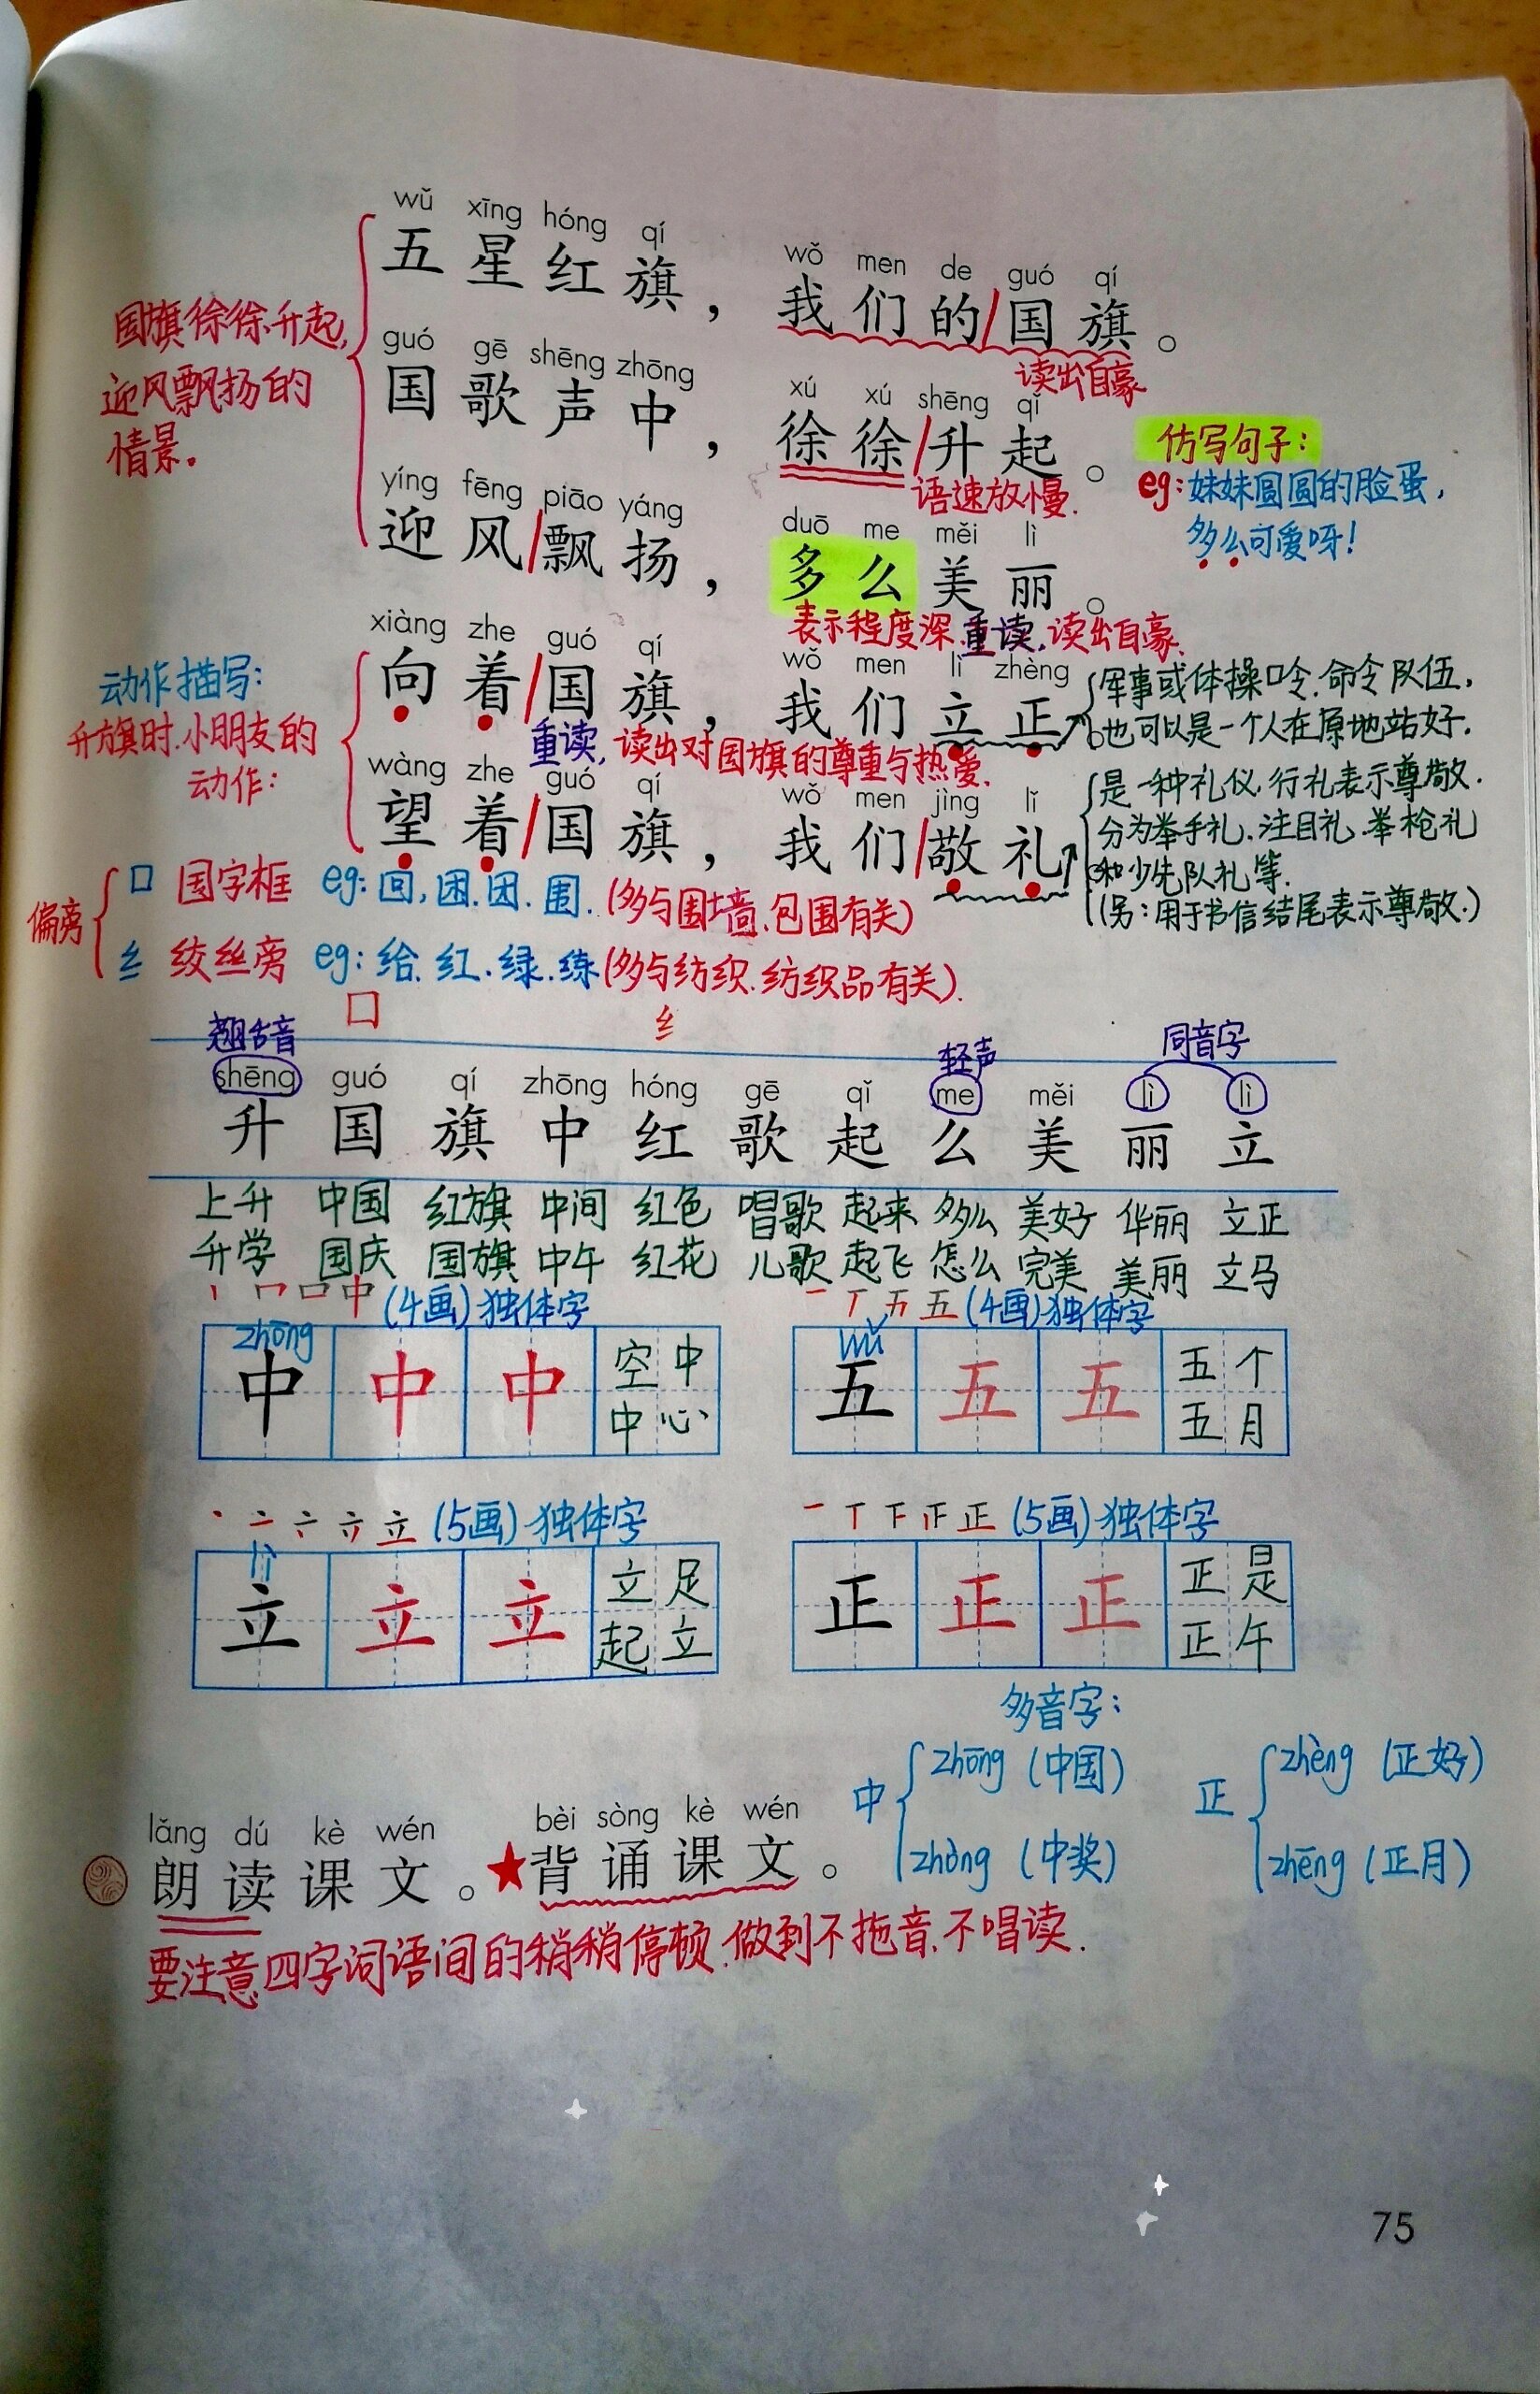 wǔ xīng hóng qí wǒ men de guó qí
五星红旗，我们的/国旗。
国旗徐徐升起，
迎风飘扬的
情景。
读出自豪
guó gē shēng zhōng xú xú shēng qǐ
国歌声中，徐徐/升起。
语速放慢.
仿写句子：
eg:妹妹圆圆的脸蛋，
多么可爱呀！
yíng fēng piāo yáng duō me měi lì
迎风/飘扬，多么美丽。
表示程度深.重读,读出自豪.
xiàng zhe guó qí wǒ men lì zhèng
向着/国旗，我们立正
动作描写：
升旗时.小朋友的
动作：
重读，读出对国旗的尊重与热爱.
军事或体操口令.命令队伍，
也可以是一个人在原地站好.
wàng zhe guó qí wǒ men jìng lǐ
望着/国旗，我们/敬礼
是一种礼仪.行礼表示尊敬.
分为举手礼.注目礼.举枪礼
和少先队礼等.
(另：用于书信结尾表示尊敬.)
偏旁
囗 国字框 eg:回,困.团.围.(多与围墙.包围有关)
纟 绞丝旁 eg:给.红.绿.练(多与纺织.纺织品有关).
囗 纟
翘舌音 轻声 同音字
shēng guó qí zhōng hóng gē qǐ me měi lì lì
升 国 旗 中 红 歌 起 么 美 丽 立
上升 中国 红旗 中间 红色 唱歌 起来 多么 美好 华丽 立正
升学 国庆 国旗 中午 红花 儿歌 起飞 怎么 完美 美丽 立马
丨 𠃍 口 中 (4画)独体字
zhōng
中 中 中 空中
中心
一 丅 五 五 (4画)独体字
wǔ
五 五 五 五个
五月
丶 亠 立 (5画)独体字
lì
立 立 立 立足
起立
一 丅 下 正 正 (5画)独体字
正 正 正 正是
正午
多音字：
中 zhōng (中国)
zhòng (中奖)
正 zhèng (正好)
zhēng (正月)
lǎng dú kè wén bèi sòng kè wén
朗读课文。★背诵课文。
要注意四字词语间的稍稍停顿.做到不拖音.不唱读.
75